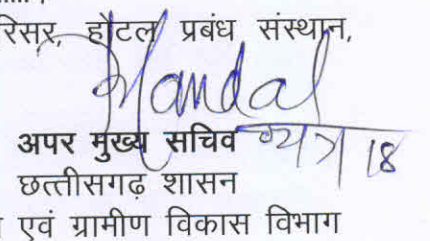 रिसर, होटल प्रबंध संस्थान,
Mandal
अपर मुख्य सचिव
18
छत्तीसगढ़ शासन
एवं ग्रामीण विकास विभाग